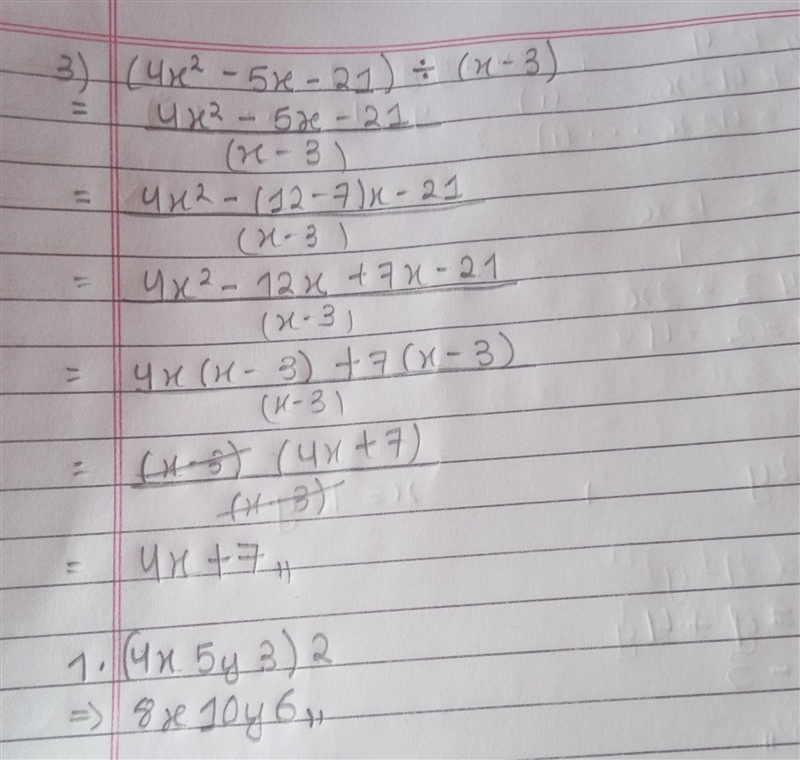 3) (4x² - 5x - 21) ÷ (x - 3)
= 4x² - 5x - 21
(x - 3)
= 4x² - (12 - 7)x - 21
(x - 3)
= 4x² - 12x + 7x - 21
(x - 3)
= 4x(x - 3) + 7(x - 3)
(x - 3)
= (x - 3) (4x + 7)
(x - 3)
= 4x + 7,,
1. (4x 5y 3) 2
=> 8x 10y 6,,